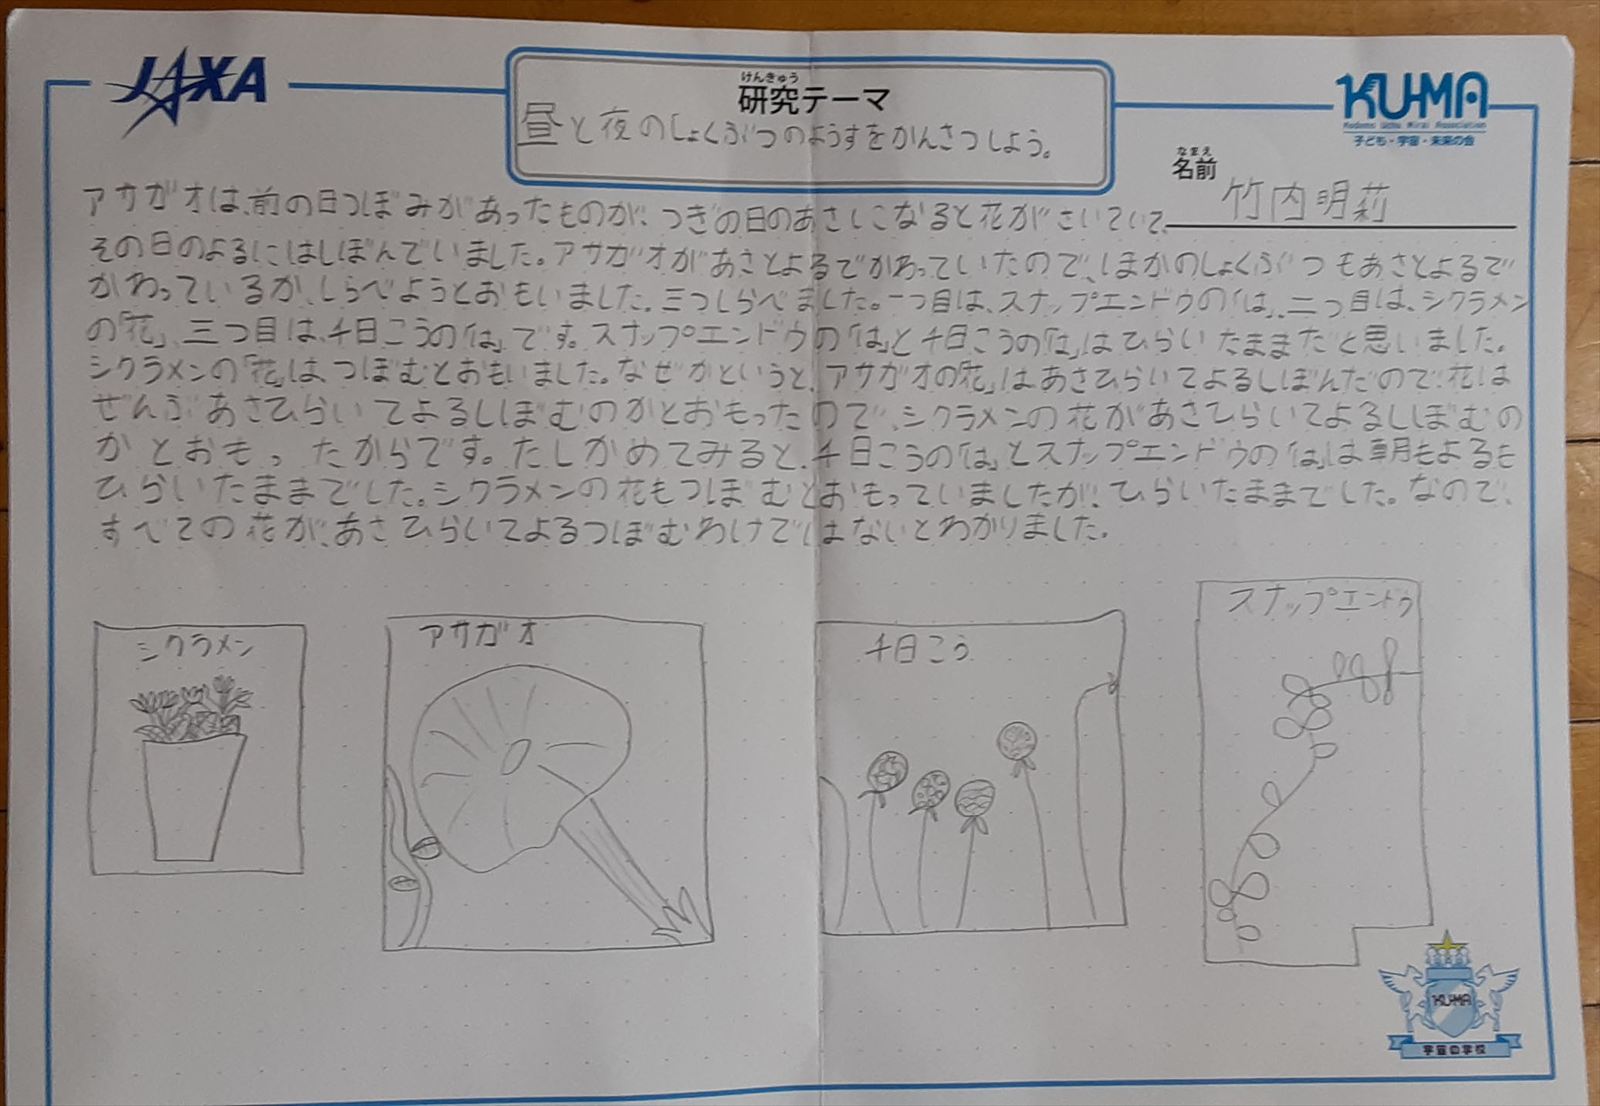 JAXA
けんきゅう
研究テーマ
昼と夜のしょくぶつのようすをかんさつしよう。
KU-MA
Kodomo Uchu Mirai Association
子ども・宇宙・未来の会
なまえ
名前
竹内明莉
アサガオは、前の日つぼみがあったものが、つぎの日のあさになると花がさいていて、
その日のよるにはしぼんでいました。アサガオがあさとよるでかわっていたので、ほかのしょくぶつもあさとよるで
かわっているか、しらべようとおもいました。三つしらべました。一つ目は、スナップエンドウの「は」、二つ目は、シクラメン
の「花」、三つ目は、千日こうの「は」です。スナップエンドウの「は」と千日こうの「は」はひらいたままだと思いました。
シクラメンの「花」は、つぼむとおもいました。なぜかというと、アサガオの「花」はあさひらいてよるしぼんだので、花は
ぜんぶあさひらいてよるしぼむのかとおもったので、シクラメンの花があさひらいてよるしぼむの
かとおもったからです。たしかめてみると、千日こうの「は」とスナップエンドウの「は」は朝もよるも
ひらいたままでした。シクラメンの花もつぼむとおもっていましたが、ひらいたままでした。なので、
すべての花が、あさひらいてよるつぼむわけではないとわかりました。
シクラメン
アサガオ
千日こう
スナップエンドウ
KU-MA
宇宙の学校